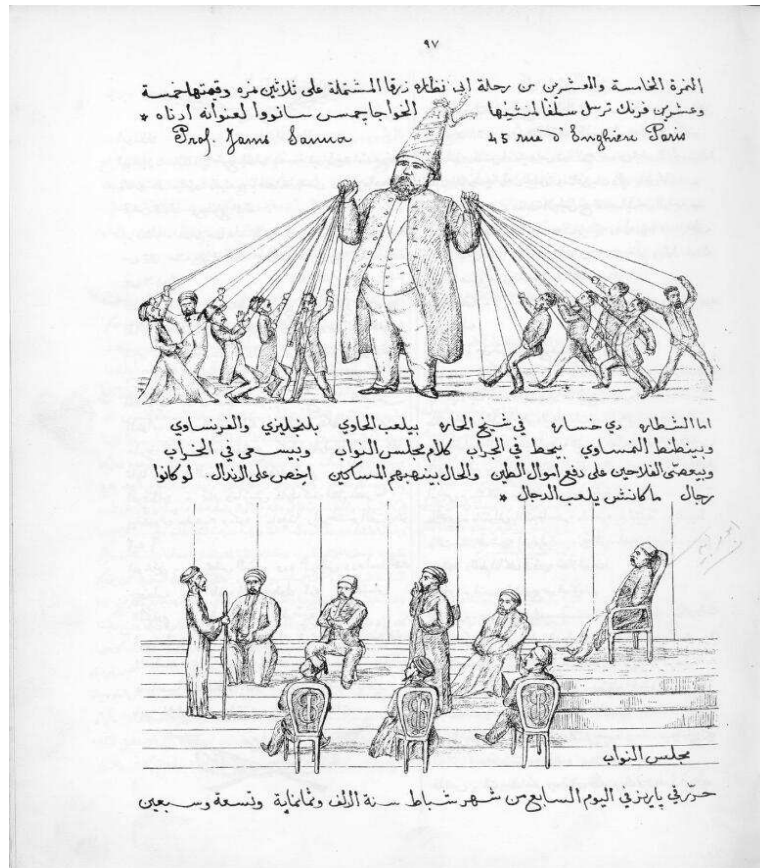 ٩٧
النمرة الخامسة والعشرين من رحلة ابى نظاره زرقا المشتملة على ثلاثين نمره وقيمتها خمسة
وعشرين فرنك ترسل سلفا لمنشيها الخواجا جيمس سانووا لعنوانه ادناه *
Prof. James Sanua 45 rue d'Enghiere Paris
اما الشطاره دي خساره في شيخ الحاره بيلعب الحاوي بلنجليزي والفرنساوي
وبينطنط النمساوي بيحط في الجراب كلام مجلس النواب وبيسعى في الخراب
وبيعصّى الفلاحين على دفع اموال الطين والحال بينهبهم المساكين اخص على الرندال. لو كانوا
رجال ما كانش يلعب الدجال *
مجلس النواب
حرّر في پاريز في اليوم السابع من شهر شباط سنة الالف وثمانماية وتسعة وسبعين